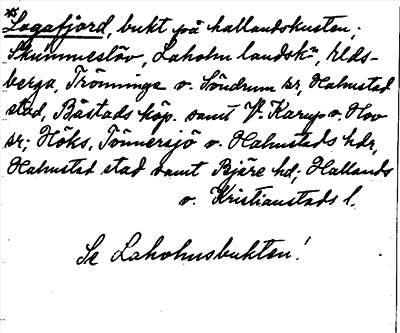 *Lagafjord, bukt på hallandskusten;
Skummeslöv, Laholm landsk., Elds-
berga, Trönninge o. Söndrum sr, Halmstad
stad, Båstads köp. samt V. Karup o. Hov
sr; Höks, Tönnersjö o. Halmstads hdr,
Halmstad stad samt Bjäre hd; Hallands
o. Kristianstads l.
Se Laholmsbukten!